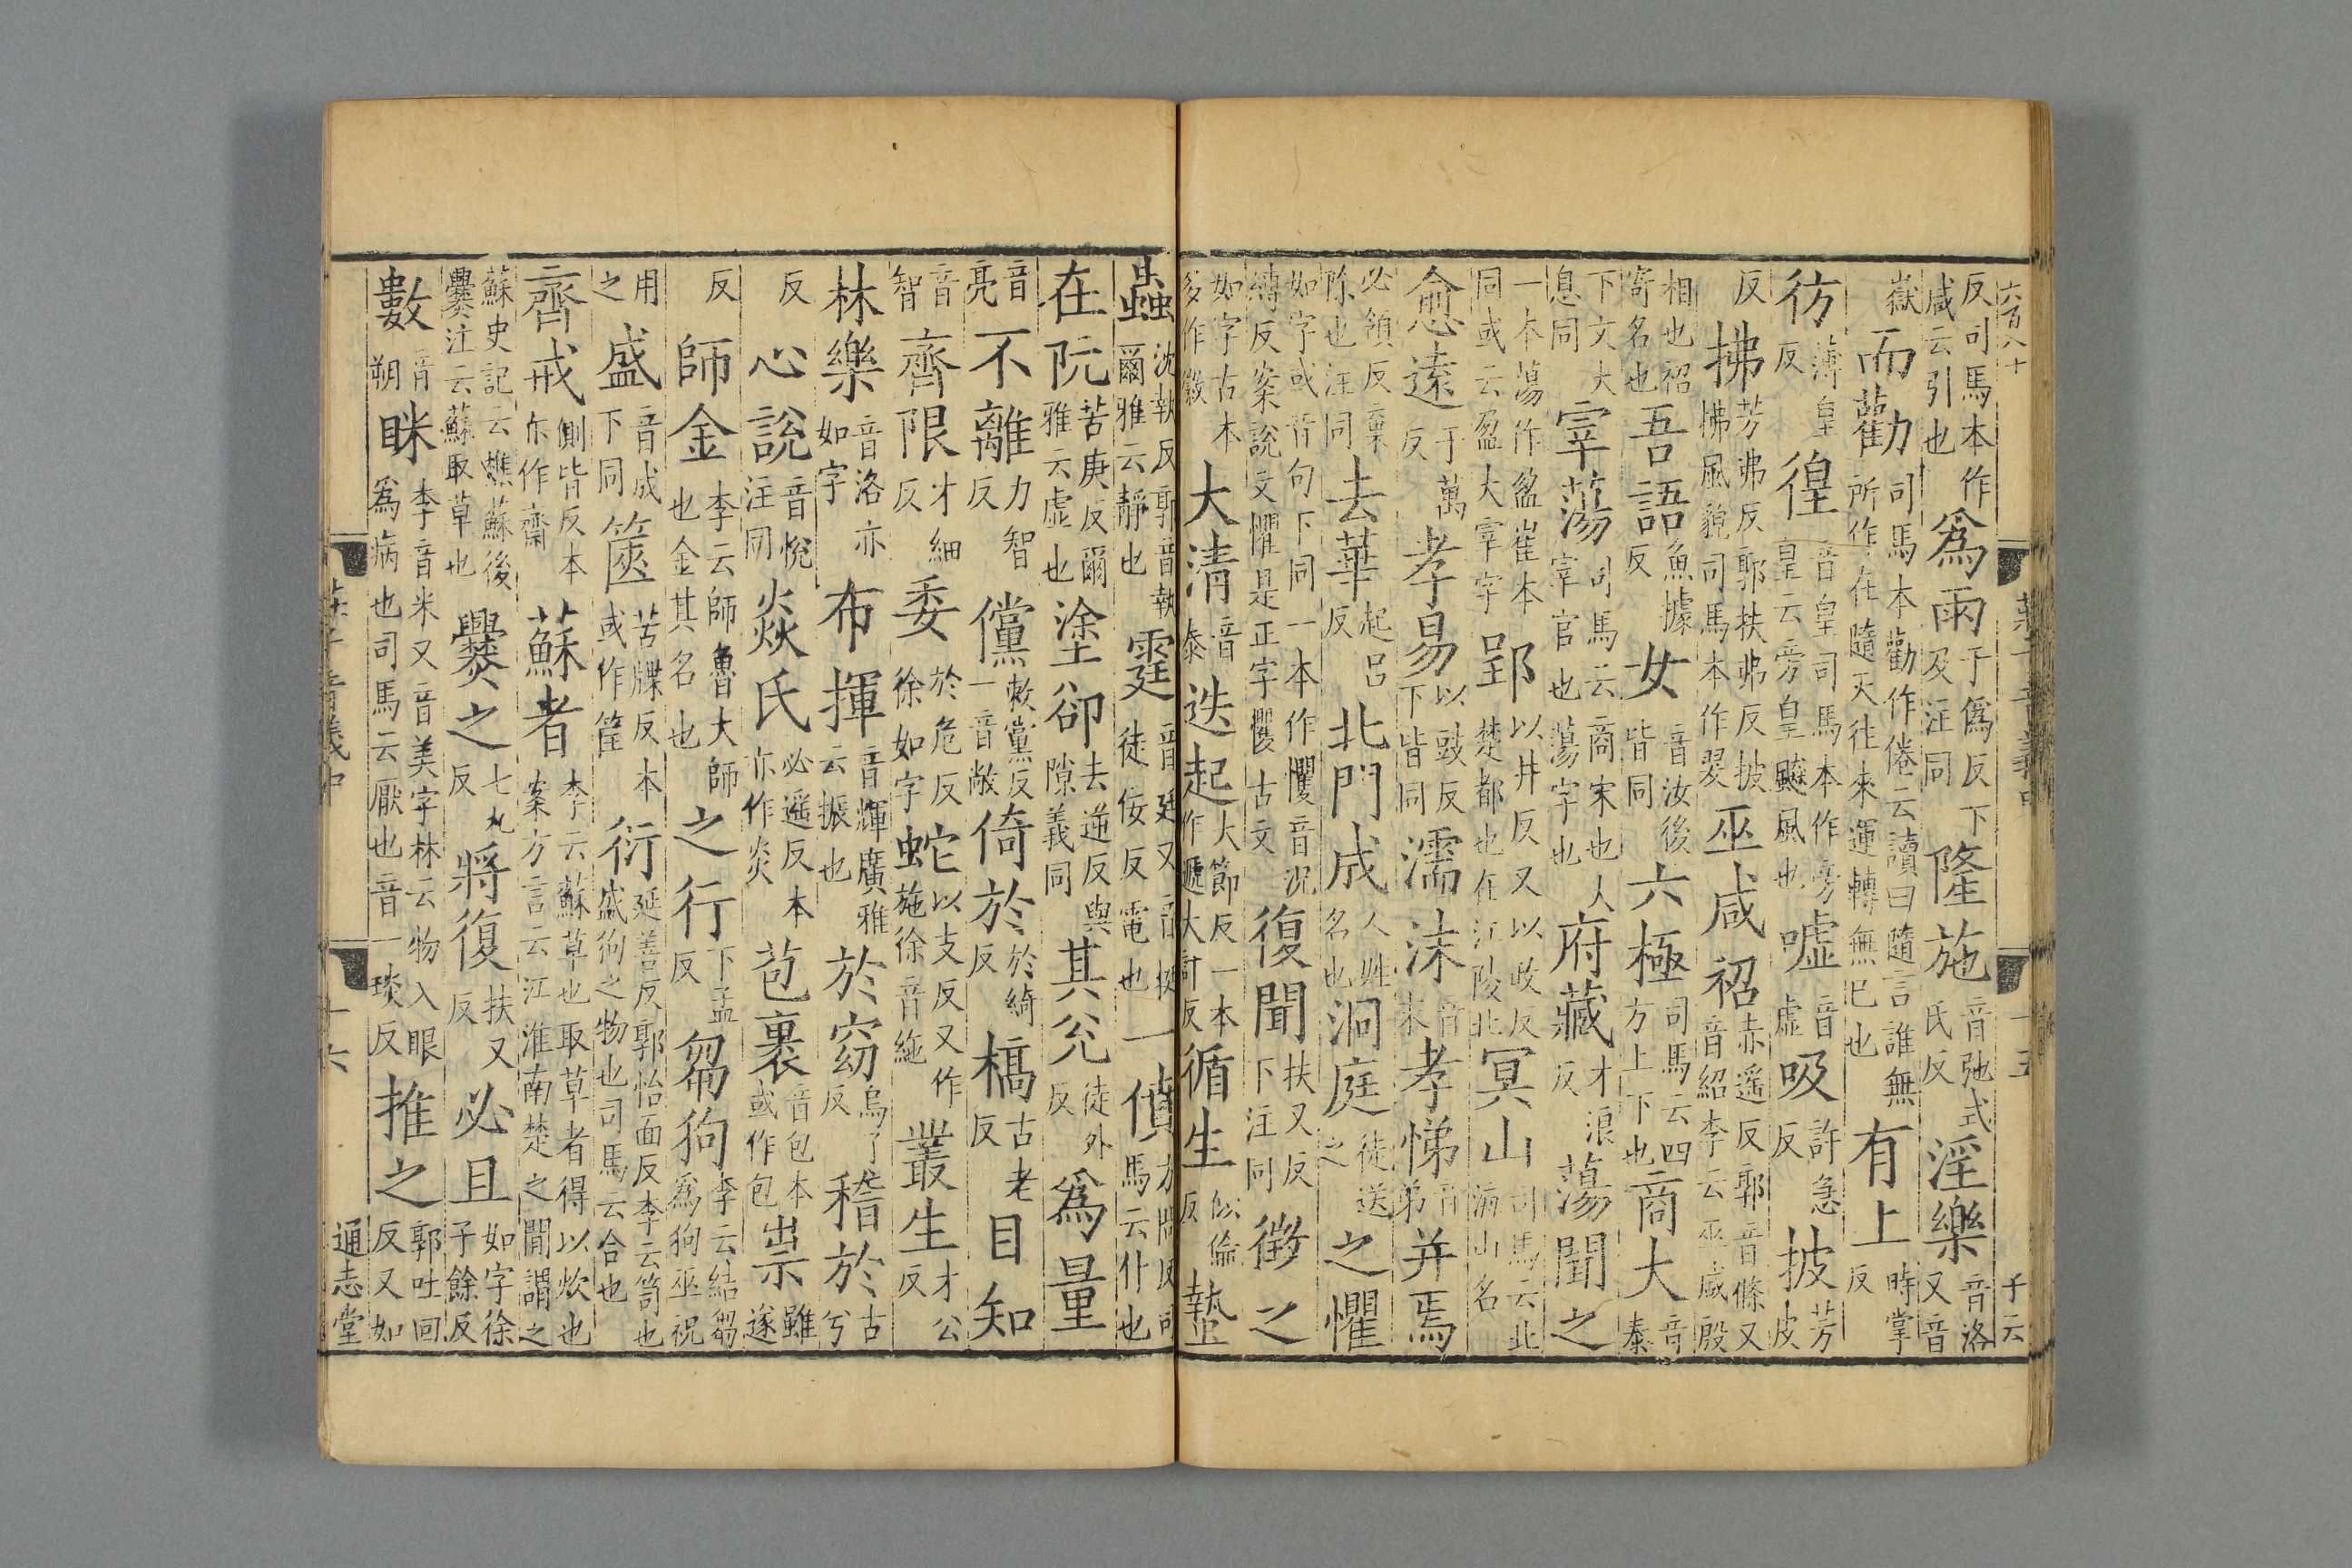 六百八十 莊子音義中 十五 千云
反司馬本作咸云引也爲雨于僞反下及注同隆施音弛式氏反淫樂音洛又音
嶽而勸司馬本勸作倦云讀曰隨言誰無所作在隨天往來運轉無已也有上時掌反
彷薄皇反徨音皇司馬本作旁皇云旁皇飈風也噓音虛吸許急反披芳皮
反拂芳弗反郭扶弗反披拂風貌司馬本作翇巫咸祒赤遥反郭音條又音紹李云巫咸殷
相也祒寄名也吾語魚據反女音汝後皆同六極司馬云四方上下也商大音泰
下文大息同宰蕩司馬云商宋也人宰官也蕩字也府藏才浪反蕩聞之
一本蕩作盈崔本同或云盈大宰字郢以井反又以政反楚都也在江陵北冥山司馬云北海山名
愈遠于萬反孝易以豉反下皆同濡沫音末孝悌音弟并焉
必領反棄除也注同去華起呂反北門成人姓名也洞庭徒送之之懼
如字或音句下同一本作懼音況縛反案說文懼是正字戄古文復聞扶又反下注同徵之
如字古本多作徽大清音泰迭起大節反一本作遞大計反循生似倫反蟄
蟲沈執反郭音執爾雅云靜也霆音廷又音挺徒佞反電也一僨方問反司馬云仆也
在阬苦庚反爾雅云虛也塗卻去逆反與隙義同其兊徒外反爲量
音亮不離力智反儻敕黨反一音敞倚於於綺反槁古老反目知
音智齊限才細反委於危反徐如字蛇以支反又作施徐音絁叢生才公反
林樂音洛亦如字布揮音輝廣雅云振也於窈烏了反稽於古兮
反心說音悅注同焱氏必遥反本亦作炎苞裹音包本或作包祟雖遂
反師金李云師魯大師也金其名也之行下孟反芻狗李云結芻爲狗巫祝
用之盛音成下同篋苦牒反本或作筐衍延善反郭怡面反李云笥也盛狗之物也司馬云合也
齊戒側皆反本亦作齋蘇者李云蘇草也取草者得以炊也案方言云江淮南楚之閒謂之
蘇史記云樵蘇後爨注云蘇取草也爨之七丸反將復扶又反必且如字徐子餘反
數音朔眯李音米又音美字林云物入眼爲病也司馬云厭也音一琰反推之郭吐回反又如
莊子音義中 十六 通志堂